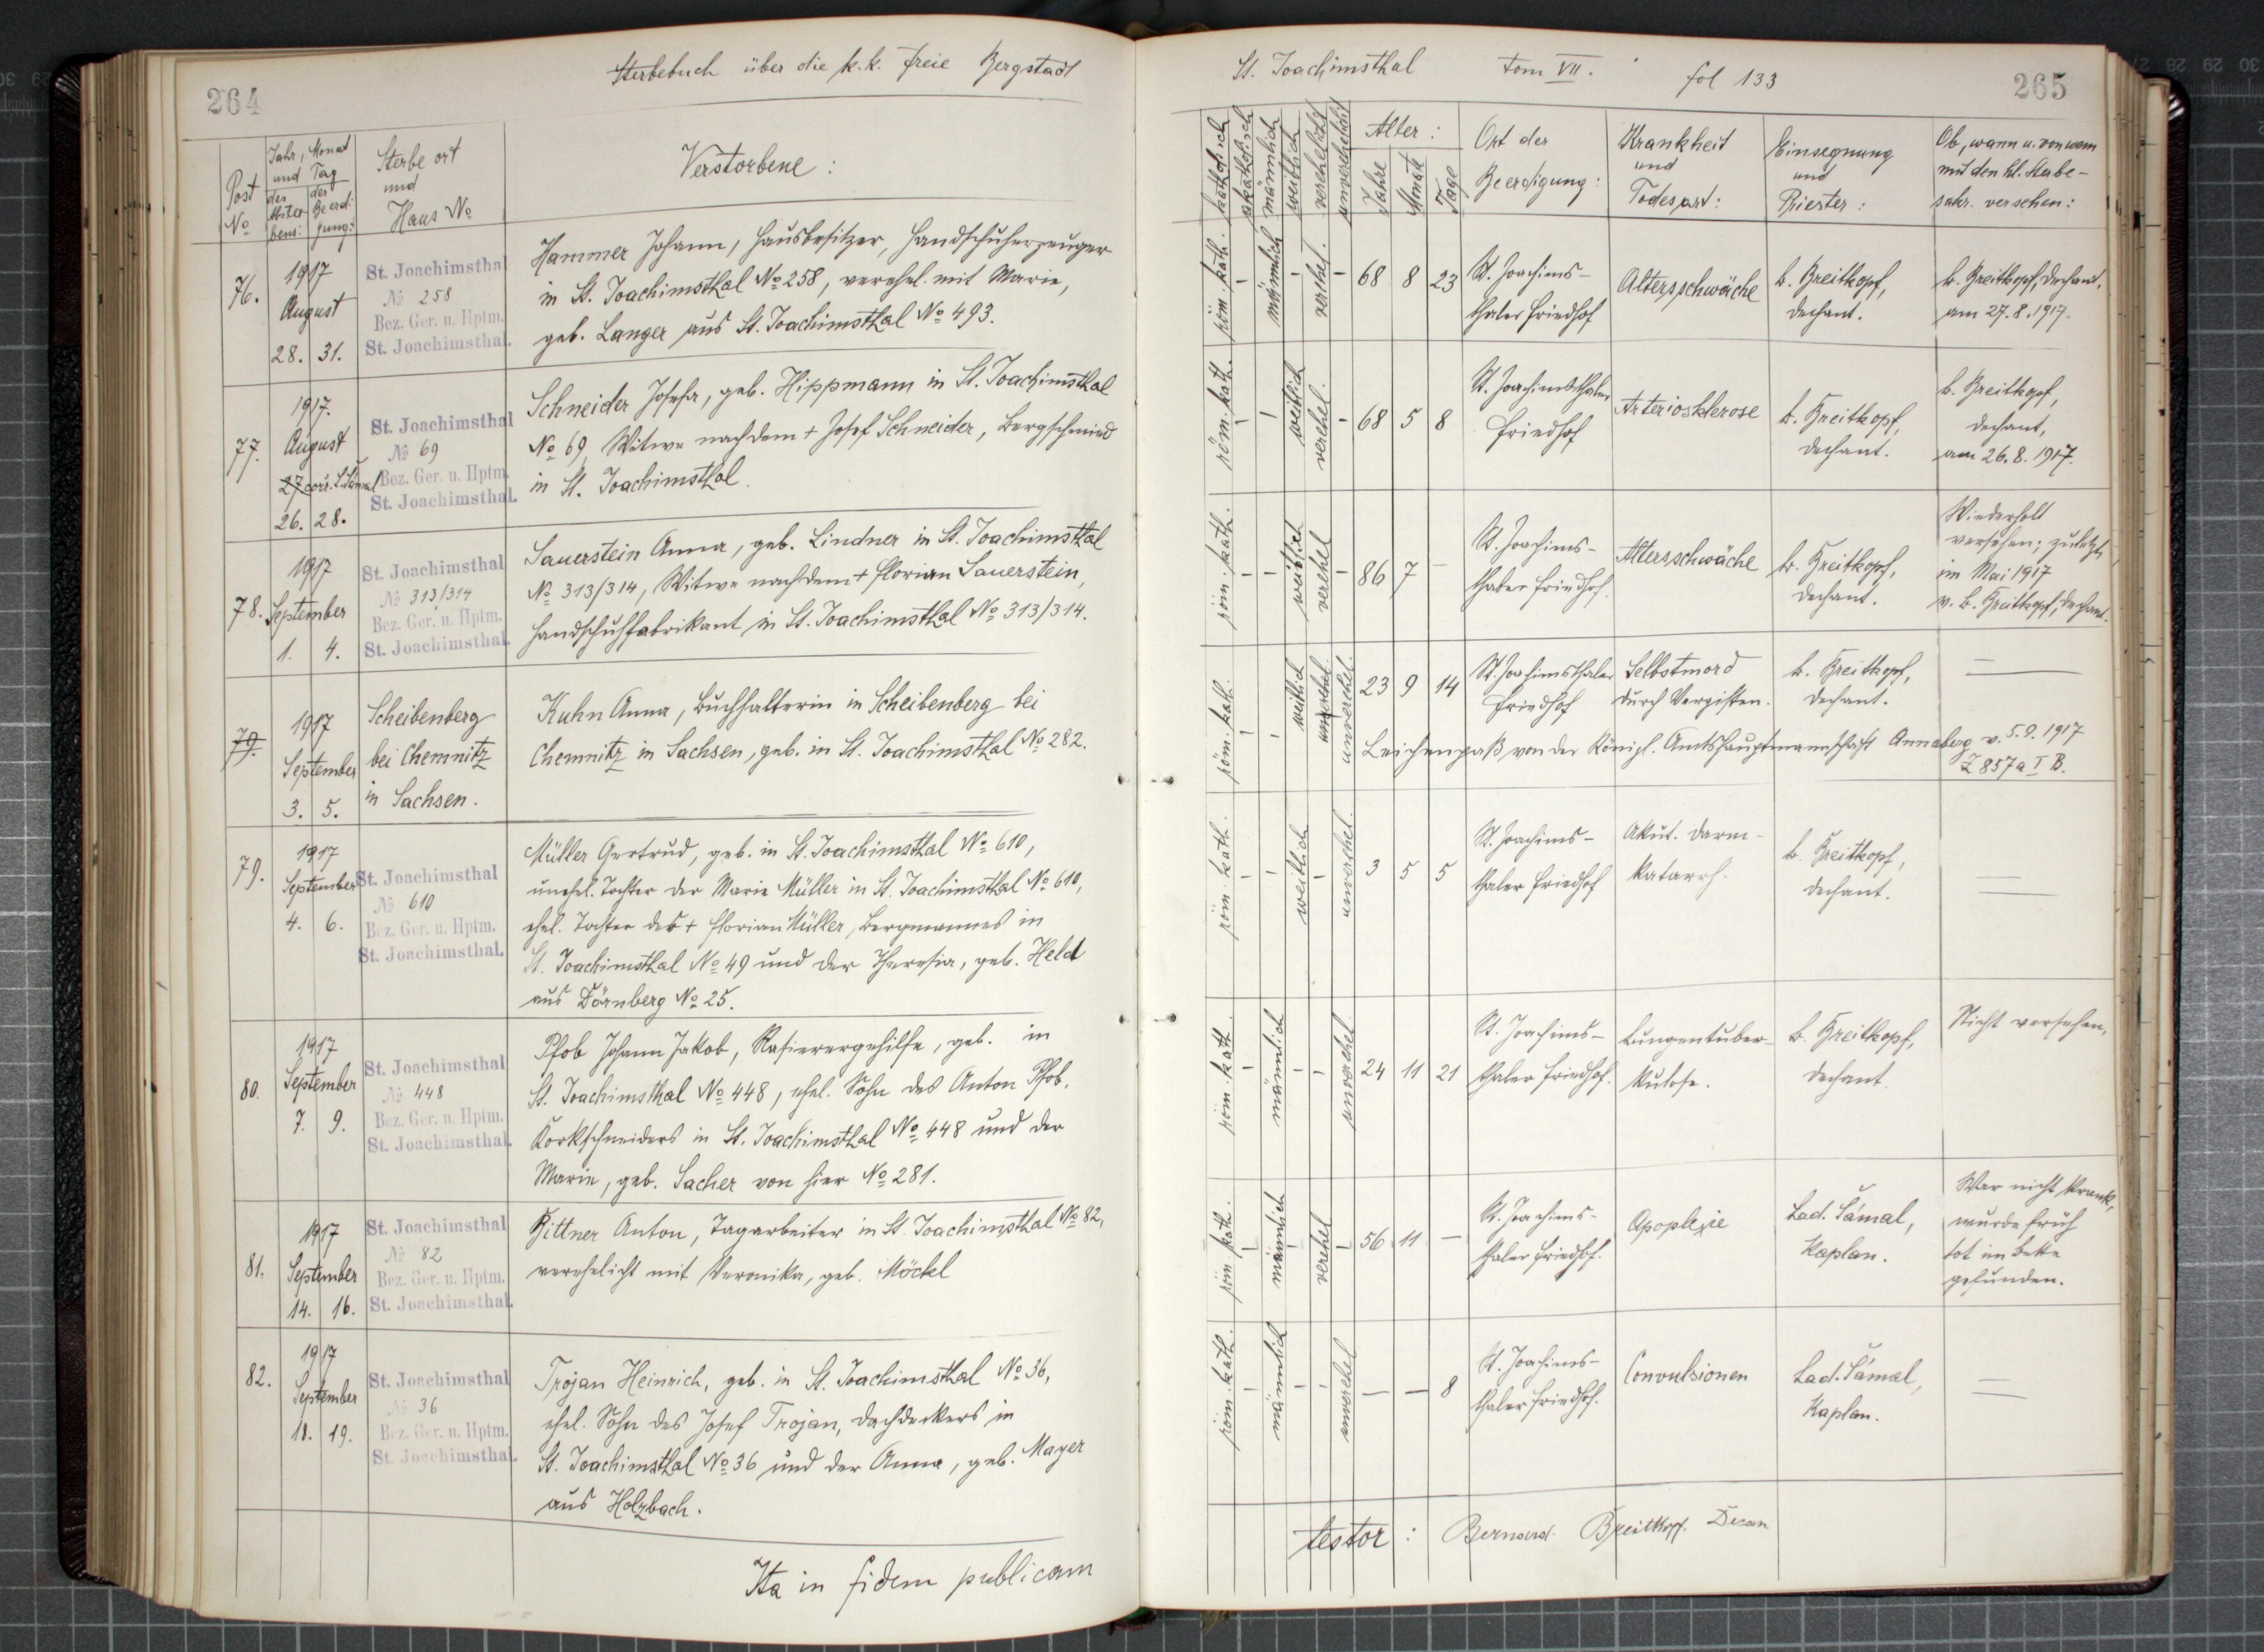 264
Sterbebuch über die k.k. freie Bergstadt
Post No
Jahr, Monat und Tag
des Absterbens:
der Beerdigung:
Sterbeort
und
Haus No
Verstorbene:
76.
1917
August
28. 31.
St. Joachimsthal
No 258
Bez. Ger. u. Hptm.
St. Joachimsthal.
Hammer Johann, Hausbesitzer, Handschuherzeuger
in St. Joachimsthal No 258, verehel. mit Marie,
geb. Langer aus St. Joachimsthal No 493.
77.
1917.
August
27 corr. L. Šámal
26. 28.
St. Joachimsthal
No 69
Bez. Ger. u. Hptm.
St. Joachimsthal.
Schneider Josefa, geb. Hippmann in St. Joachimsthal
No 69, Witwe nach dem + Josef Schneider, Bergschmied
in St. Joachimsthal.
78.
1917
September
1. 4.
St. Joachimsthal
No 313/314
Bez. Ger. u. Hptm.
St. Joachimsthal.
Sauerstein Anna, geb. Lindner in St. Joachimsthal
No 313/314, Witwe nach dem + Florian Sauerstein,
Handschuhfabrikant in St. Joachimsthal No 313/314.
79.
1917
September
3. 5.
Scheibenberg
bei Chemnitz
in Sachsen.
Kuhn Anna, Buchhalterin in Scheibenberg bei
Chemnitz in Sachsen, geb. in St. Joachimsthal No 282.
79.
1917
September
4. 6.
St. Joachimsthal
No 610
Bez. Ger. u. Hptm.
St. Joachimsthal.
Müller Gertrud, geb. in St. Joachimsthal No 610,
unehel. Tochter der Marie Müller in St. Joachimsthal No 610,
ehel. Tochter des + Florian Müller, Bergmannes in
St. Joachimsthal No 49 und der Theresia, geb. Held
aus Dörnberg No 25.
80.
1917
September
7. 9.
St. Joachimsthal
No 448
Bez. Ger. u. Hptm.
St. Joachimsthal.
Pfob Johann Jakob, Rasierergehilfe, geb. in
St. Joachimsthal No 448, ehel. Sohn des Anton Pfob,
Korkschneiders in St. Joachimsthal No 448 und der
Marie, geb. Sacher von hier No 281.
81.
1917
September
14. 16.
St. Joachimsthal
No 82
Bez. Ger. u. Hptm.
St. Joachimsthal.
Bittner Anton, Tagarbeiter in St. Joachimsthal No 82,
verehelicht mit Veronika, geb. Möckl
82.
1917
September
18. 19.
St. Joachimsthal
No 36
Bez. Ger. u. Hptm.
St. Joachimsthal.
Trojan Heinrich, geb. in St. Joachimsthal No 36,
ehel. Sohn des Josef Trojan, Dachdeckers in
St. Joachimsthal No 36 und der Anna, geb. Mayer
aus Holzbach.
Ita in fidem publicam
St. Joachimsthal tom VII. fol 133
265
katholisch
akatholisch
männlich
weiblich
verehelicht
unverehelicht
Alter:
Jahre
Monate
Tage
Ort der
Beerdigung:
Krankheit
und
Todesart:
Einsegnung
und
Priester:
Ob, wann u. von wem
mit den hl. Stube-
sakr. versehen:
röm. kath. - männlich - verehel. - 68 8 23
St. Joachims-
thaler Friedhof
Altersschwäche
b. Breitkopf,
Dechant.
b. Breitkopf, Dechant,
am 27.8.1917.
röm. kath. - - weiblich verehel. - 68 5 8
St. Joachimsthaler
Friedhof
Arteriosklerose
b. Breitkopf,
Dechant.
b. Breitkopf,
Dechant,
am 26.8.1917.
röm. kath. - - weiblich verehel - 86 7 -
St. Joachims-
thaler Friedhof.
Altersschwäche
b. Breitkopf,
Dechant.
Wiederholt
versehen; zuletzt
im Mai 1917
v. b. Breitkopf, Dechant.
röm. kath. - - weiblich unverehel. 23 9 14
St. Joachimsthaler
Friedhof
Selbstmord
durch Vergiften.
b. Breitkopf,
Dechant.
Leichenpaß von der Königl. Amtshauptmannschaft Annaberg v. 5.9.1917
Z 857a I B.
röm. kath. - - weiblich - unverehel. 3 5 5
St. Joachims-
thaler Friedhof
Akut. Darm-
katarrh.
b. Breitkopf,
Dechant.
röm. kath. - männlich - - unverehel. 24 11 21
St. Joachims-
thaler Friedhof.
Lungentuber-
kulose.
b. Breitkopf,
Dechant.
Nicht versehen.
röm. kath. - männlich - verehel - 56 11 -
St. Joachims-
thaler Friedhof.
Apoplexie
Lad. Šámal,
Kaplan.
War nicht krank,
wurde früh
tot im Bette
gefunden.
röm. kath. - männlich - - unverehel - - 8
St. Joachims-
thaler Friedhof.
Convulsionen
Lad. Šámal,
Kaplan.
testor: Bernard Breitkopf. Decan